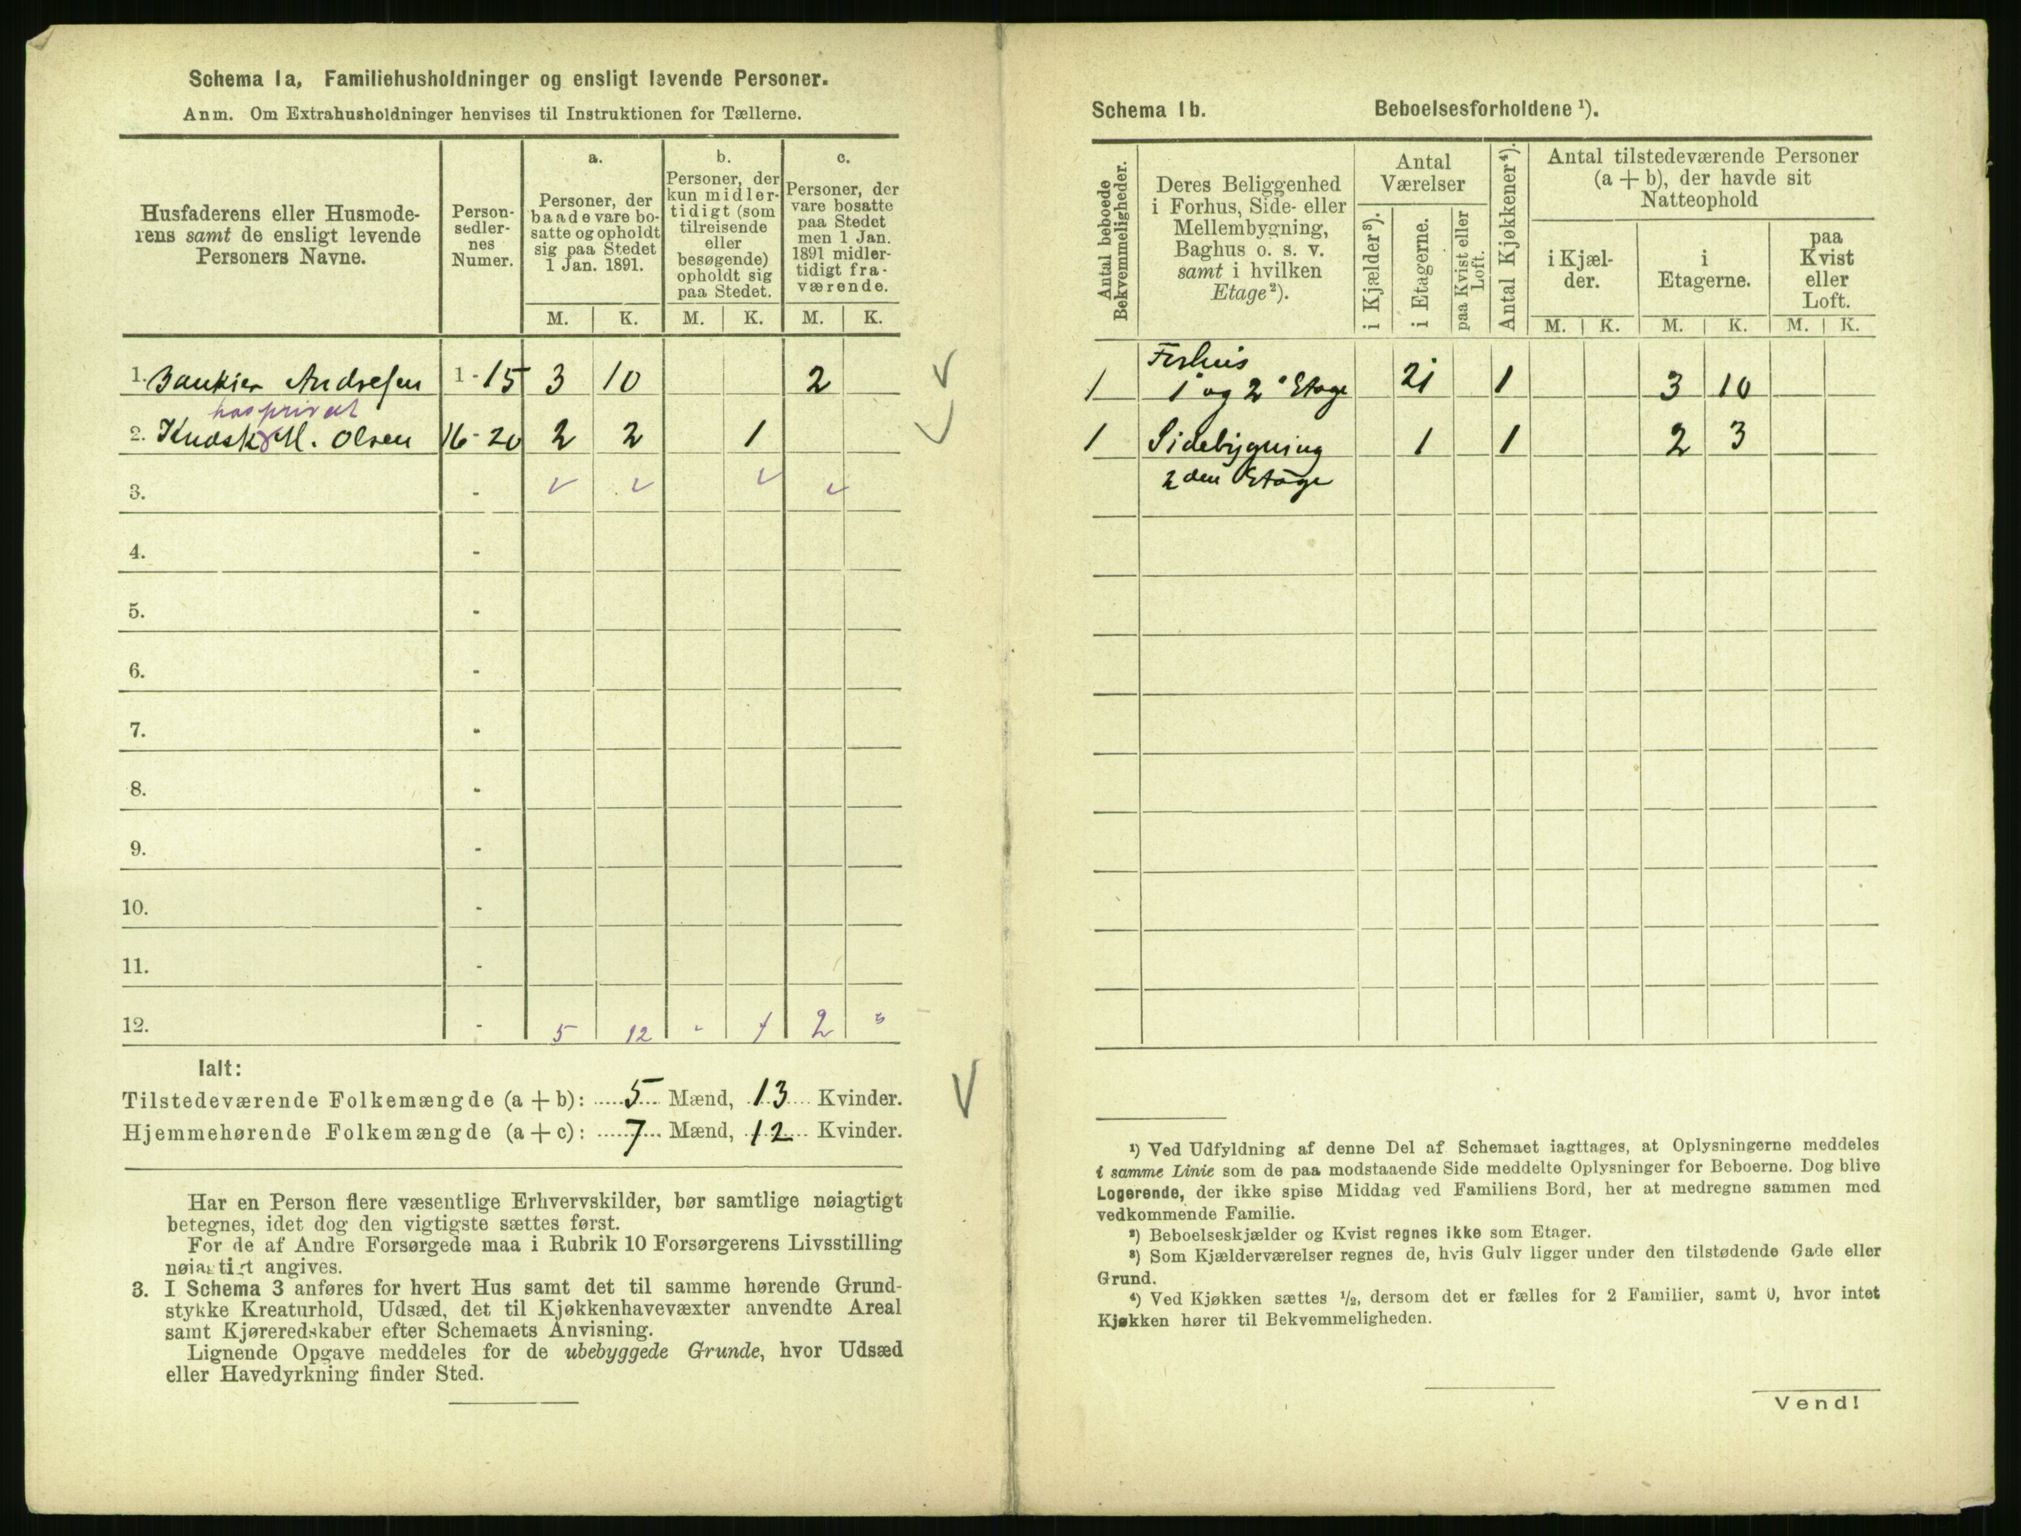 Schema 1a, Familiehusholdninger og ensligt levende Personer.
Anm. Om Extrahusholdninger henvises til Instruktionen for Tællerne.
Husfaderens eller Husmode-
rens samt de ensligt levende
Personers Navne.
Person-
sedler-
nes
Numer.
a.
Personer, der
baade vare bo-
satte og opholdt
sig paa Stedet
1 Jan. 1891.
b.
Personer, der
kun midler-
tidigt (som
tilreisende
eller
besøgende)
opholdt sig
paa Stedet.
c.
Personer, der
vare bosatte
paa Stedet
men 1 Jan.
1891 midler-
tidigt fra-
værende.
M. K. M. K. M. K.
1. Bankier Andresen 1 - 15 3 10 2
hos privat
2. Kudsk M. Olsen 16 - 20 2 2 1
3. -
4. -
5. -
6. -
7. -
8. -
9. -
10. -
11. -
12. - 5 12 - 1 2 "
Ialt:
Tilstedeværende Folkemængde (a + b): 5 Mænd, 13 Kvinder.
Hjemmehørende Folkemængde (a + c): 7 Mænd, 12 Kvinder.
Har en Person flere væsentlige Erhvervskilder, bør samtlige nøiagtigt
betegnes, idet dog den vigtigste sættes først.
For de af Andre Forsørgede maa i Rubrik 10 Forsørgerens Livsstilling
nøiagtigt angives.
3. I Schema 3 anføres for hvert Hus samt det til samme hørende Grund-
stykke Kreaturhold, Udsæd, det til Kjøkkenhavevæxter anvendte Areal
samt Kjøreredskaber efter Schemaets Anvisning.
Lignende Opgave meddeles for de ubebyggede Grunde, hvor Udsæd
eller Havedyrkning finder Sted.
Schema 1b. Beboelsesforholdene ¹).
Antal beboede
Bekvemmeligheder.
Deres Beliggenhed
i Forhus, Side- eller
Mellembygning,
Baghus o. s. v.
samt i hvilken
Etage²).
Antal
Værelser
i Kjælder³).
i Etagerne.
paa Kvist eller
Loft.
Antal Kjøkkener⁴).
Antal tilstedeværende Personer
(a + b), der havde sit
Natteophold
i Kjæl-
der.
i
Etagerne.
paa
Kvist
eller
Loft.
M. K. M. K. M. K.
Forhus
1 1 og 2 Etage 21 1 3 10
1 Sidebygning 1 1 2 3
2den Etage
¹) Ved Udfyldning af denne Del af Schemaet iagttages, at Oplysningerne meddeles
i samme Linie som de paa modstaaende Side meddelte Oplysninger for Beboerne. Dog blive
Logerende, der ikke spise Middag ved Familiens Bord, her at medregne sammen med
vedkommende Familie.
²) Beboelseskjælder og Kvist regnes ikke som Etager.
³) Som Kjælderværelser regnes de, hvis Gulv ligger under den tilstødende Gade eller
Grund.
⁴) Ved Kjøkken sættes ½, dersom det er fælles for 2 Familier, samt 0, hvor intet
Kjøkken hører til Bekvemmeligheden.
Vend!